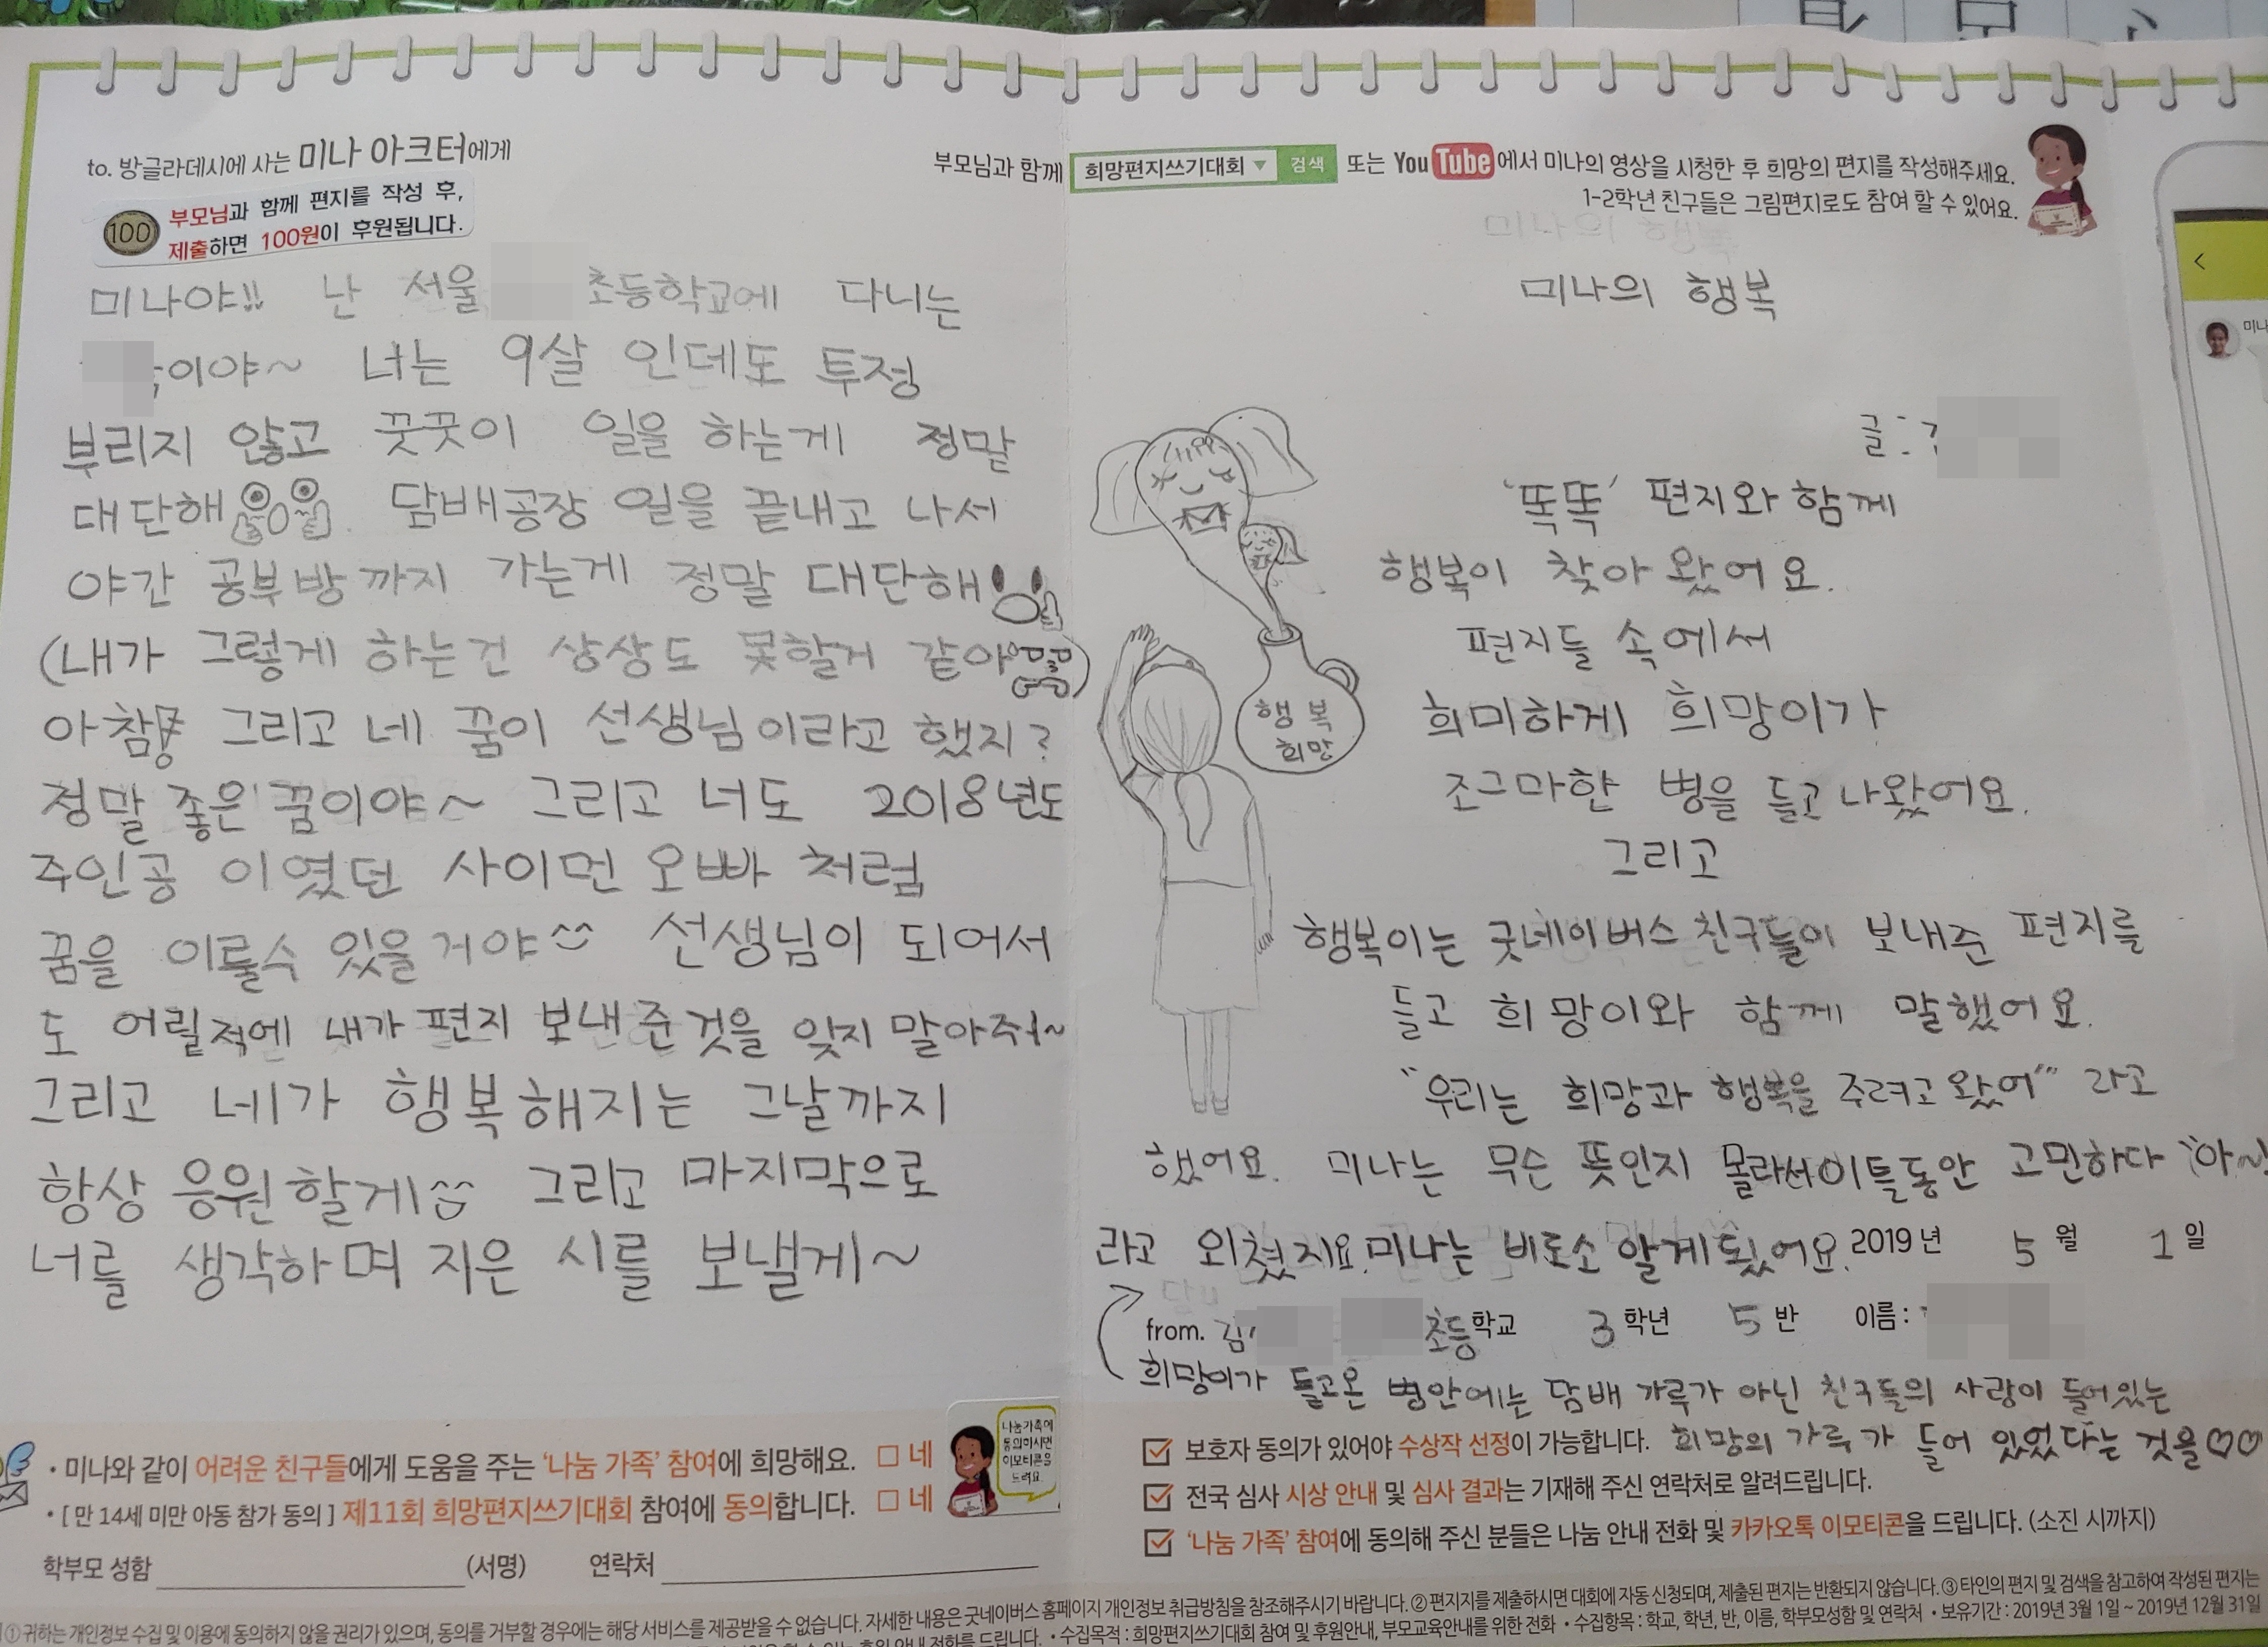 to. 방글라데시에 사는 미나 아크터에게
100
부모님과 함께 편지를 작성 후,
제출하면 100원이 후원됩니다.
미나야!! 난 서울 초등학교에 다니는
이야~ 너는 9살 인데도 투정
부리지 않고 꿋꿋이 일을 하는게 정말
대단해 담배공장 일을 끝내고 나서
야간 공부방까지 가는게 정말 대단해
(내가 그렇게 하는건 상상도 못할거 같아)
아참 그리고 네 꿈이 선생님이라고 했지?
정말 좋은 꿈이야~ 그리고 너도 2018년도
주인공 이였던 사이먼 오빠 처럼
꿈을 이룰수 있을거야^^ 선생님이 되어서
도 어릴적에 내가 편지 보내준것을 잊지 말아줘~
그리고 네가 행복해지는 그날까지
항상 응원할게^^ 그리고 마지막으로
너를 생각하며 지은 시를 보낼게~
부모님과 함께 희망편지쓰기대회 검색 또는 YouTube에서 미나의 영상을 시청한 후 희망의 편지를 작성해주세요.
1-2학년 친구들은 그림편지로도 참여 할 수 있어요.
미나의 행복
미나의 행복
글:
‘똑똑’ 편지와 함께
행복이 찾아 왔어요.
편지들 속에서
희미하게 희망이가
조그마한 병을 들고 나왔어요.
그리고
행복이는 굿네이버스 친구들이 보내준 편지를
들고 희망이와 함께 말했어요.
"우리는 희망과 행복을 주려고 왔어" 라고
했어요. 미나는 무슨 뜻인지 몰라서 이틀동안 고민하다 "아~
라고 외쳤지요. 미나는 비로소 알게 됐어요.
행복
희망
2019년 5월 1일
from. 김 초등학교 3학년 5반 이름:
희망이가 들고온 병안에는 담배 가루가 아닌 친구들의 사랑이 들어있는
희망의 가루가 들어 있었다는 것을♡♡
• 미나와 같이 어려운 친구들에게 도움을 주는 ‘나눔 가족’ 참여에 희망해요. □ 네
• [ 만 14세 미만 아동 참가 동의 ] 제11회 희망편지쓰기대회 참여에 동의합니다. □ 네
학부모 성함 (서명) 연락처
나눔가족에
동의하시면
이모티콘을
드려요
보호자 동의가 있어야 수상작 선정이 가능합니다.
전국 심사 시상 안내 및 심사 결과는 기재해 주신 연락처로 알려드립니다.
‘나눔 가족’ 참여에 동의해 주신 분들은 나눔 안내 전화 및 카카오톡 이모티콘을 드립니다. (소진 시까지)
① 귀하는 개인정보 수집 및 이용에 동의하지 않을 권리가 있으며, 동의를 거부할 경우에는 해당 서비스를 제공받을 수 없습니다. 자세한 내용은 굿네이버스 홈페이지 개인정보 취급방침을 참조해주시기 바랍니다. ② 편지지를 제출하시면 대회에 자동 신청되며, 제출된 편지는 반환되지 않습니다. ③ 타인의 편지 및 검색을 참고하여 작성된 편지는
안내 전화를 드립니다. • 수집목적 : 희망편지쓰기대회 참여 및 후원안내, 부모교육안내를 위한 전화 • 수집항목 : 학교, 학년, 반, 이름, 학부모성함 및 연락처 • 보유기간 : 2019년 3월 1일 ~ 2019년 12월 31일